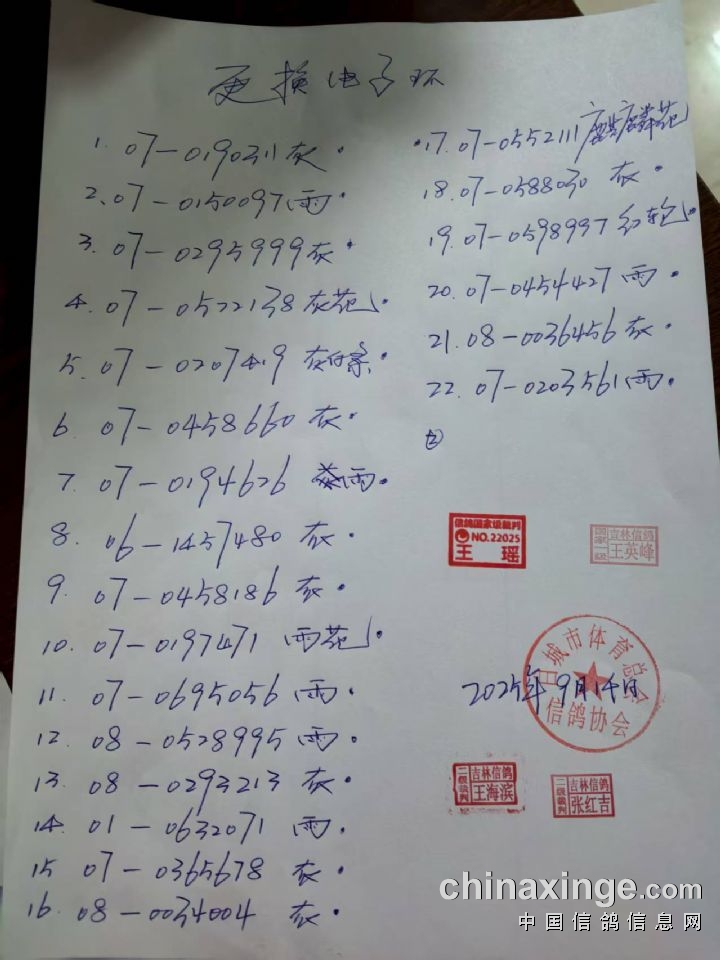 更换电子环
1. 07-0190311 灰.
2. 07-0150097 雨.
3. 07-0295999 灰.
4. 07-0522138 灰花.
5. 07-0207419 灰
6. 07-0458660 灰.
7. 07-0194626 雨.
8. 06-1457480 灰.
9. 07-0458186 灰.
10. 07-0197471 雨花.
11. 07-0695056 雨.
12. 08-0528995 雨.
13. 08-0293213 灰.
14. 01-0632071 雨.
15 07-0365678 灰.
16. 08-0034004 灰.
17. 07-0552111 麒麟花
18. 07-0588030 灰.
19. 07-0598997 红轮.
20. 07-0454427 雨.
21. 08-0036456 灰.
22. 07-0203561 雨.
信鸽国家级裁判
NO.22025
王瑶
国家一级
吉林信鸽
王英峰
白城市体育总会
信鸽协会
2025年9月14日
二级裁判
吉林信鸽
王海滨
二级裁判
吉林信鸽
张红吉
chinaxinge.com
中国信鸽信息网